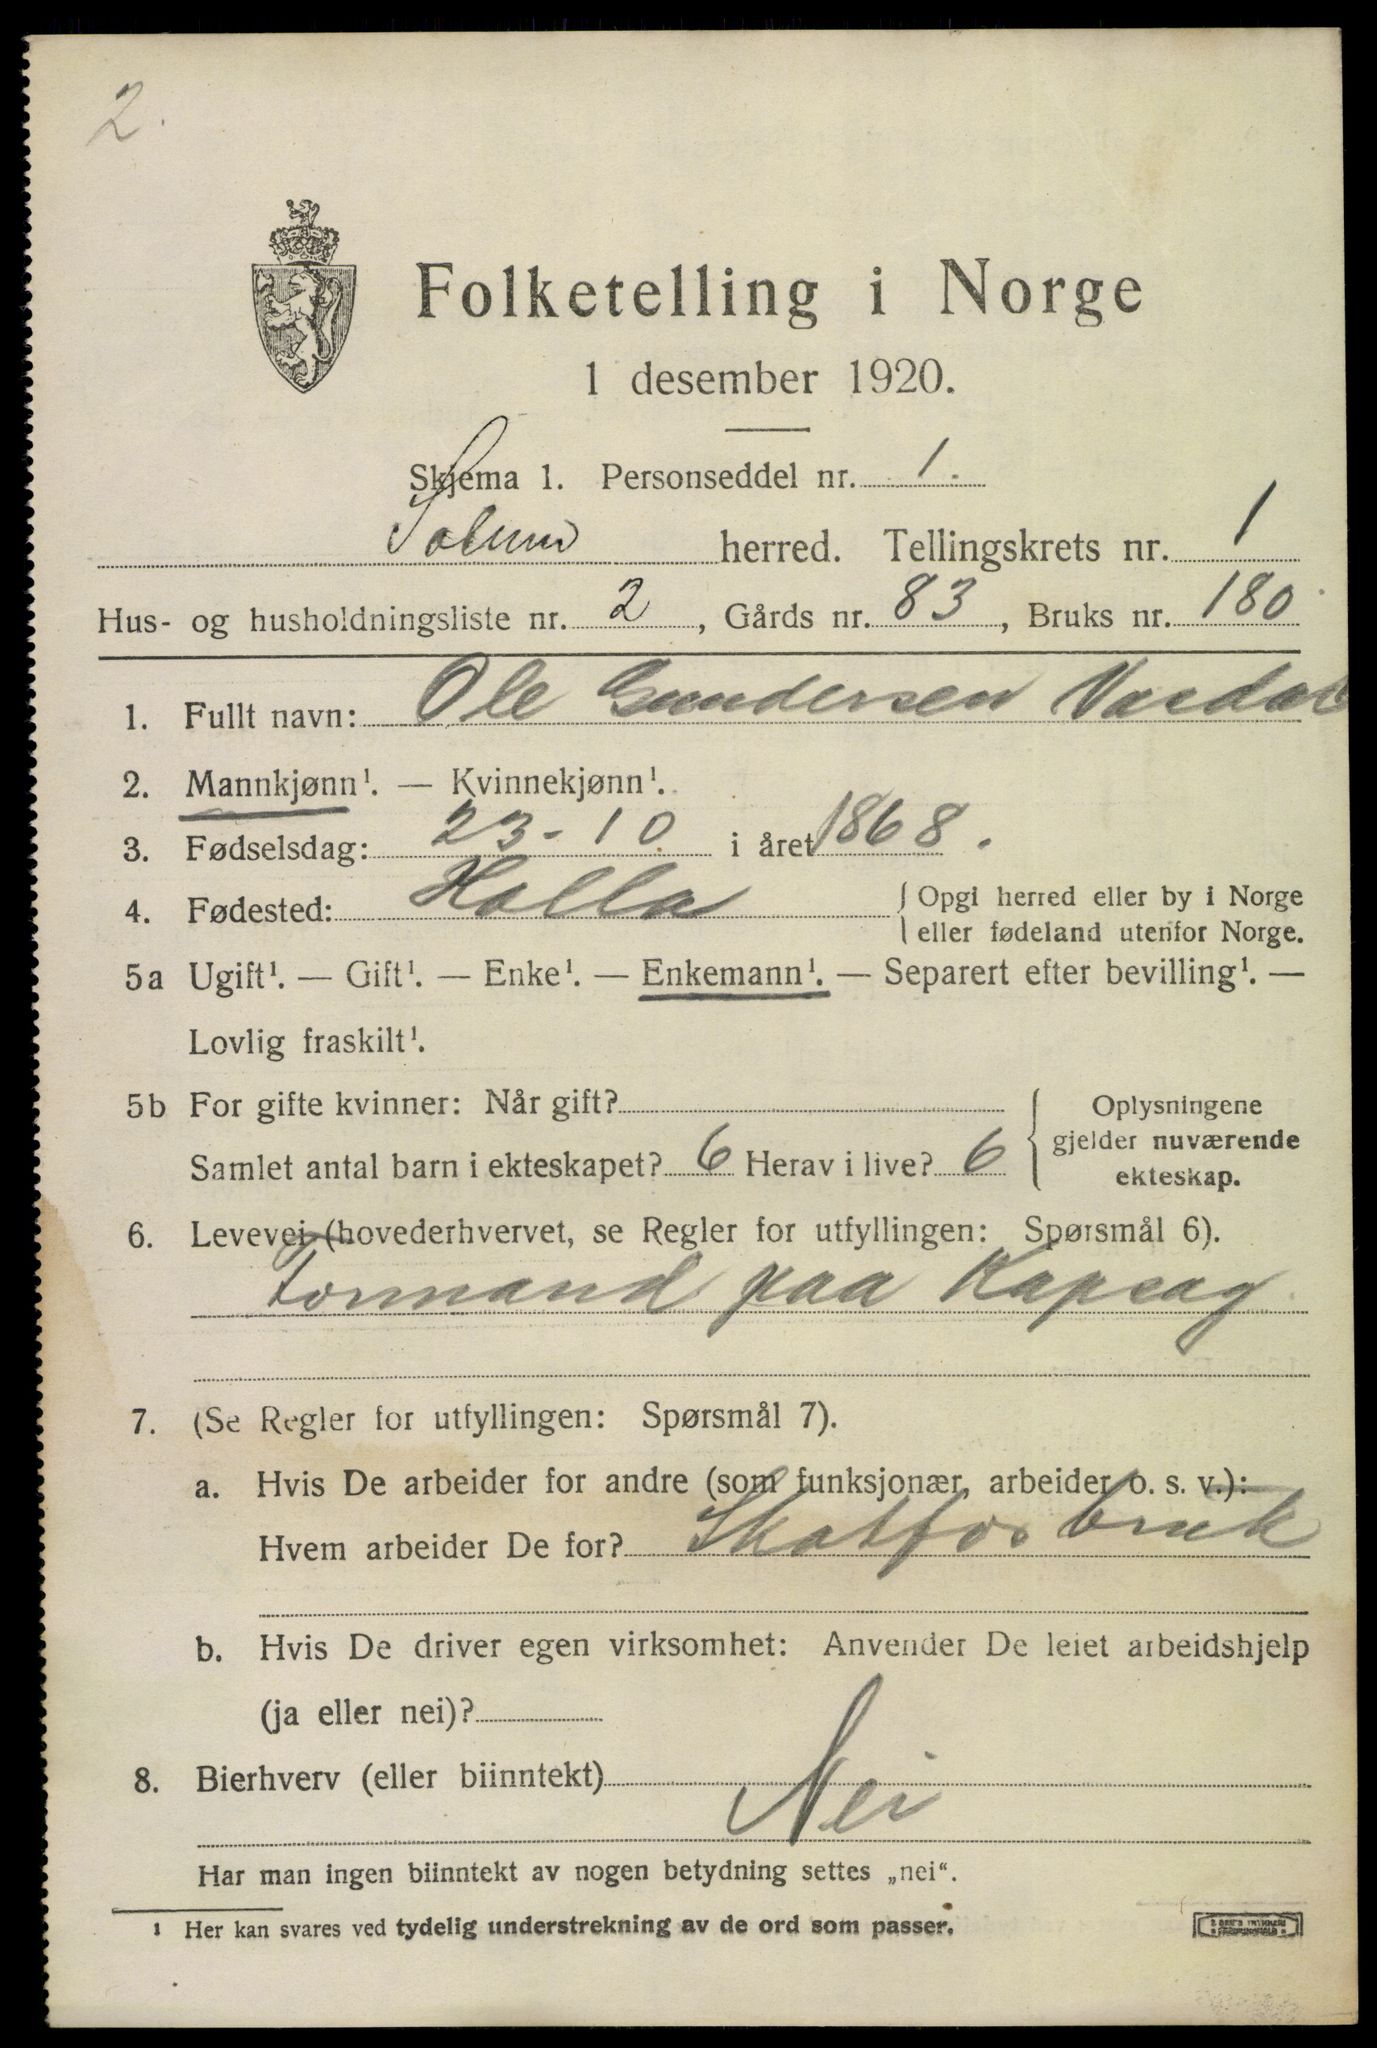 2.
Folketelling i Norge
1 desember 1920.
Skjema 1. Personseddel nr. 1.
Solum herred. Tellingskrets nr. 1
Hus- og husholdningsliste nr. 2, Gårds nr. 83, Bruks nr. 180
1. Fullt navn: Ole Gundersen Vardal
2. Mannkjønn¹. — Kvinnekjønn¹.
3. Fødselsdag: 23-10 i året 1868.
4. Fødested: Holla { Opgi herred eller by i Norge
eller fødeland utenfor Norge.
5a Ugift¹. — Gift¹. — Enke¹. — Enkemann¹. — Separert efter bevilling¹. —
Lovlig fraskilt¹.
5b For gifte kvinner: Når gift? { Oplysningene
gjelder nuværende
Samlet antal barn i ekteskapet? 6 Herav i live? 6
ekteskap.
6. Levevei (hovederhvervet, se Regler for utfyllingen: Spørsmål 6).
Formand paa Kapsag
7. (Se Regler for utfyllingen: Spørsmål 7).
a. Hvis De arbeider for andre (som funksjonær, arbeider o. s. v.):
Hvem arbeider De for? Skotfos bruk
b. Hvis De driver egen virksomhet: Anvender De leiet arbeidshjelp
(ja eller nei)?
8. Bierhverv (eller biinntekt) Nei
Har man ingen biinntekt av nogen betydning settes „nei“.
¹ Her kan svares ved tydelig understrekning av de ord som passer.